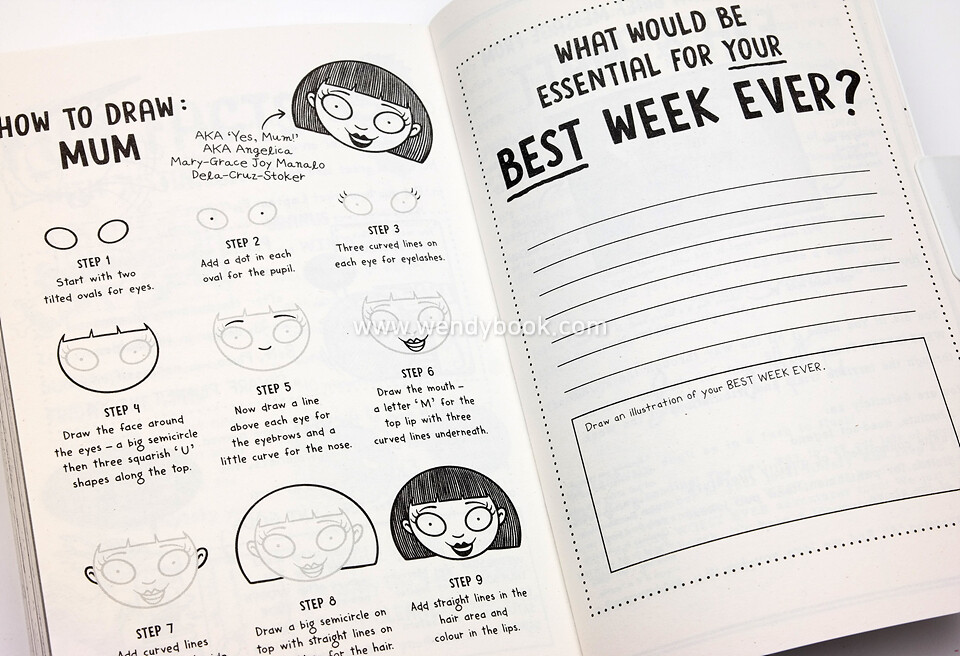 HOW TO DRAW:
MUM
AKA 'Yes, Mum!'
AKA Angelica
Mary-Grace Joy Manalo
Dela-Cruz-Stoker
STEP 1
Start with two
tilted ovals for eyes.
STEP 2
Add a dot in each
oval for the pupil.
STEP 3
Three curved lines on
each eye for eyelashes.
STEP 4
Draw the face around
the eyes – a big semicircle
then three squarish 'U'
shapes along the top.
STEP 5
Now draw a line
above each eye for
the eyebrows and a
little curve for the nose.
STEP 6
Draw the mouth –
a letter 'M' for the
top lip with three
curved lines underneath.
STEP 7
Add curved lines
STEP 8
Draw a big semicircle on
top with straight lines on
for the hair.
STEP 9
Add straight lines in the
hair area and
colour in the lips.
WHAT WOULD BE
ESSENTIAL FOR YOUR
BEST WEEK EVER?
Draw an illustration of your BEST WEEK EVER.
www.wendybook.com